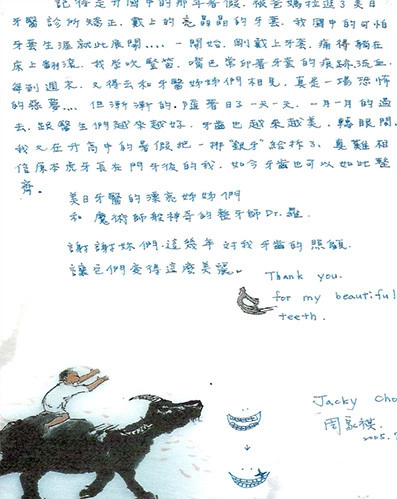 記得是升國中的那年暑假,被爸媽拉進了美日
牙醫診所矯正,戴上的亮晶晶的牙套,我國中的可怕
牙套生涯就此展開....一開始,剛戴上牙套,痛得躺在
床上翻滾,我愛吹豎笛,嘴巴常印著牙套的痕跡流血,
每到週末,又得去和牙醫姊姊們相見,真是一場恐怖
的惡夢.... 但漸漸的,隨著日子一天一天,一月一月的過
去,跟醫生們越來越好,牙齒也越來越美,轉眼間,
我又在升高中的暑假把一排"銀牙"給拆了,真難相
信原本虎牙長在門牙後的我,如今牙齒也可以如此整
齊。
美日牙醫的漂亮姊姊們
和魔術師般神奇的整牙師Dr.羅.
謝謝妳們,這幾年對我牙齒的照顧.
讓它們變得這麼美麗。
Thank you.
for my beautiful
teeth.
Jacky Cho
周
2005.